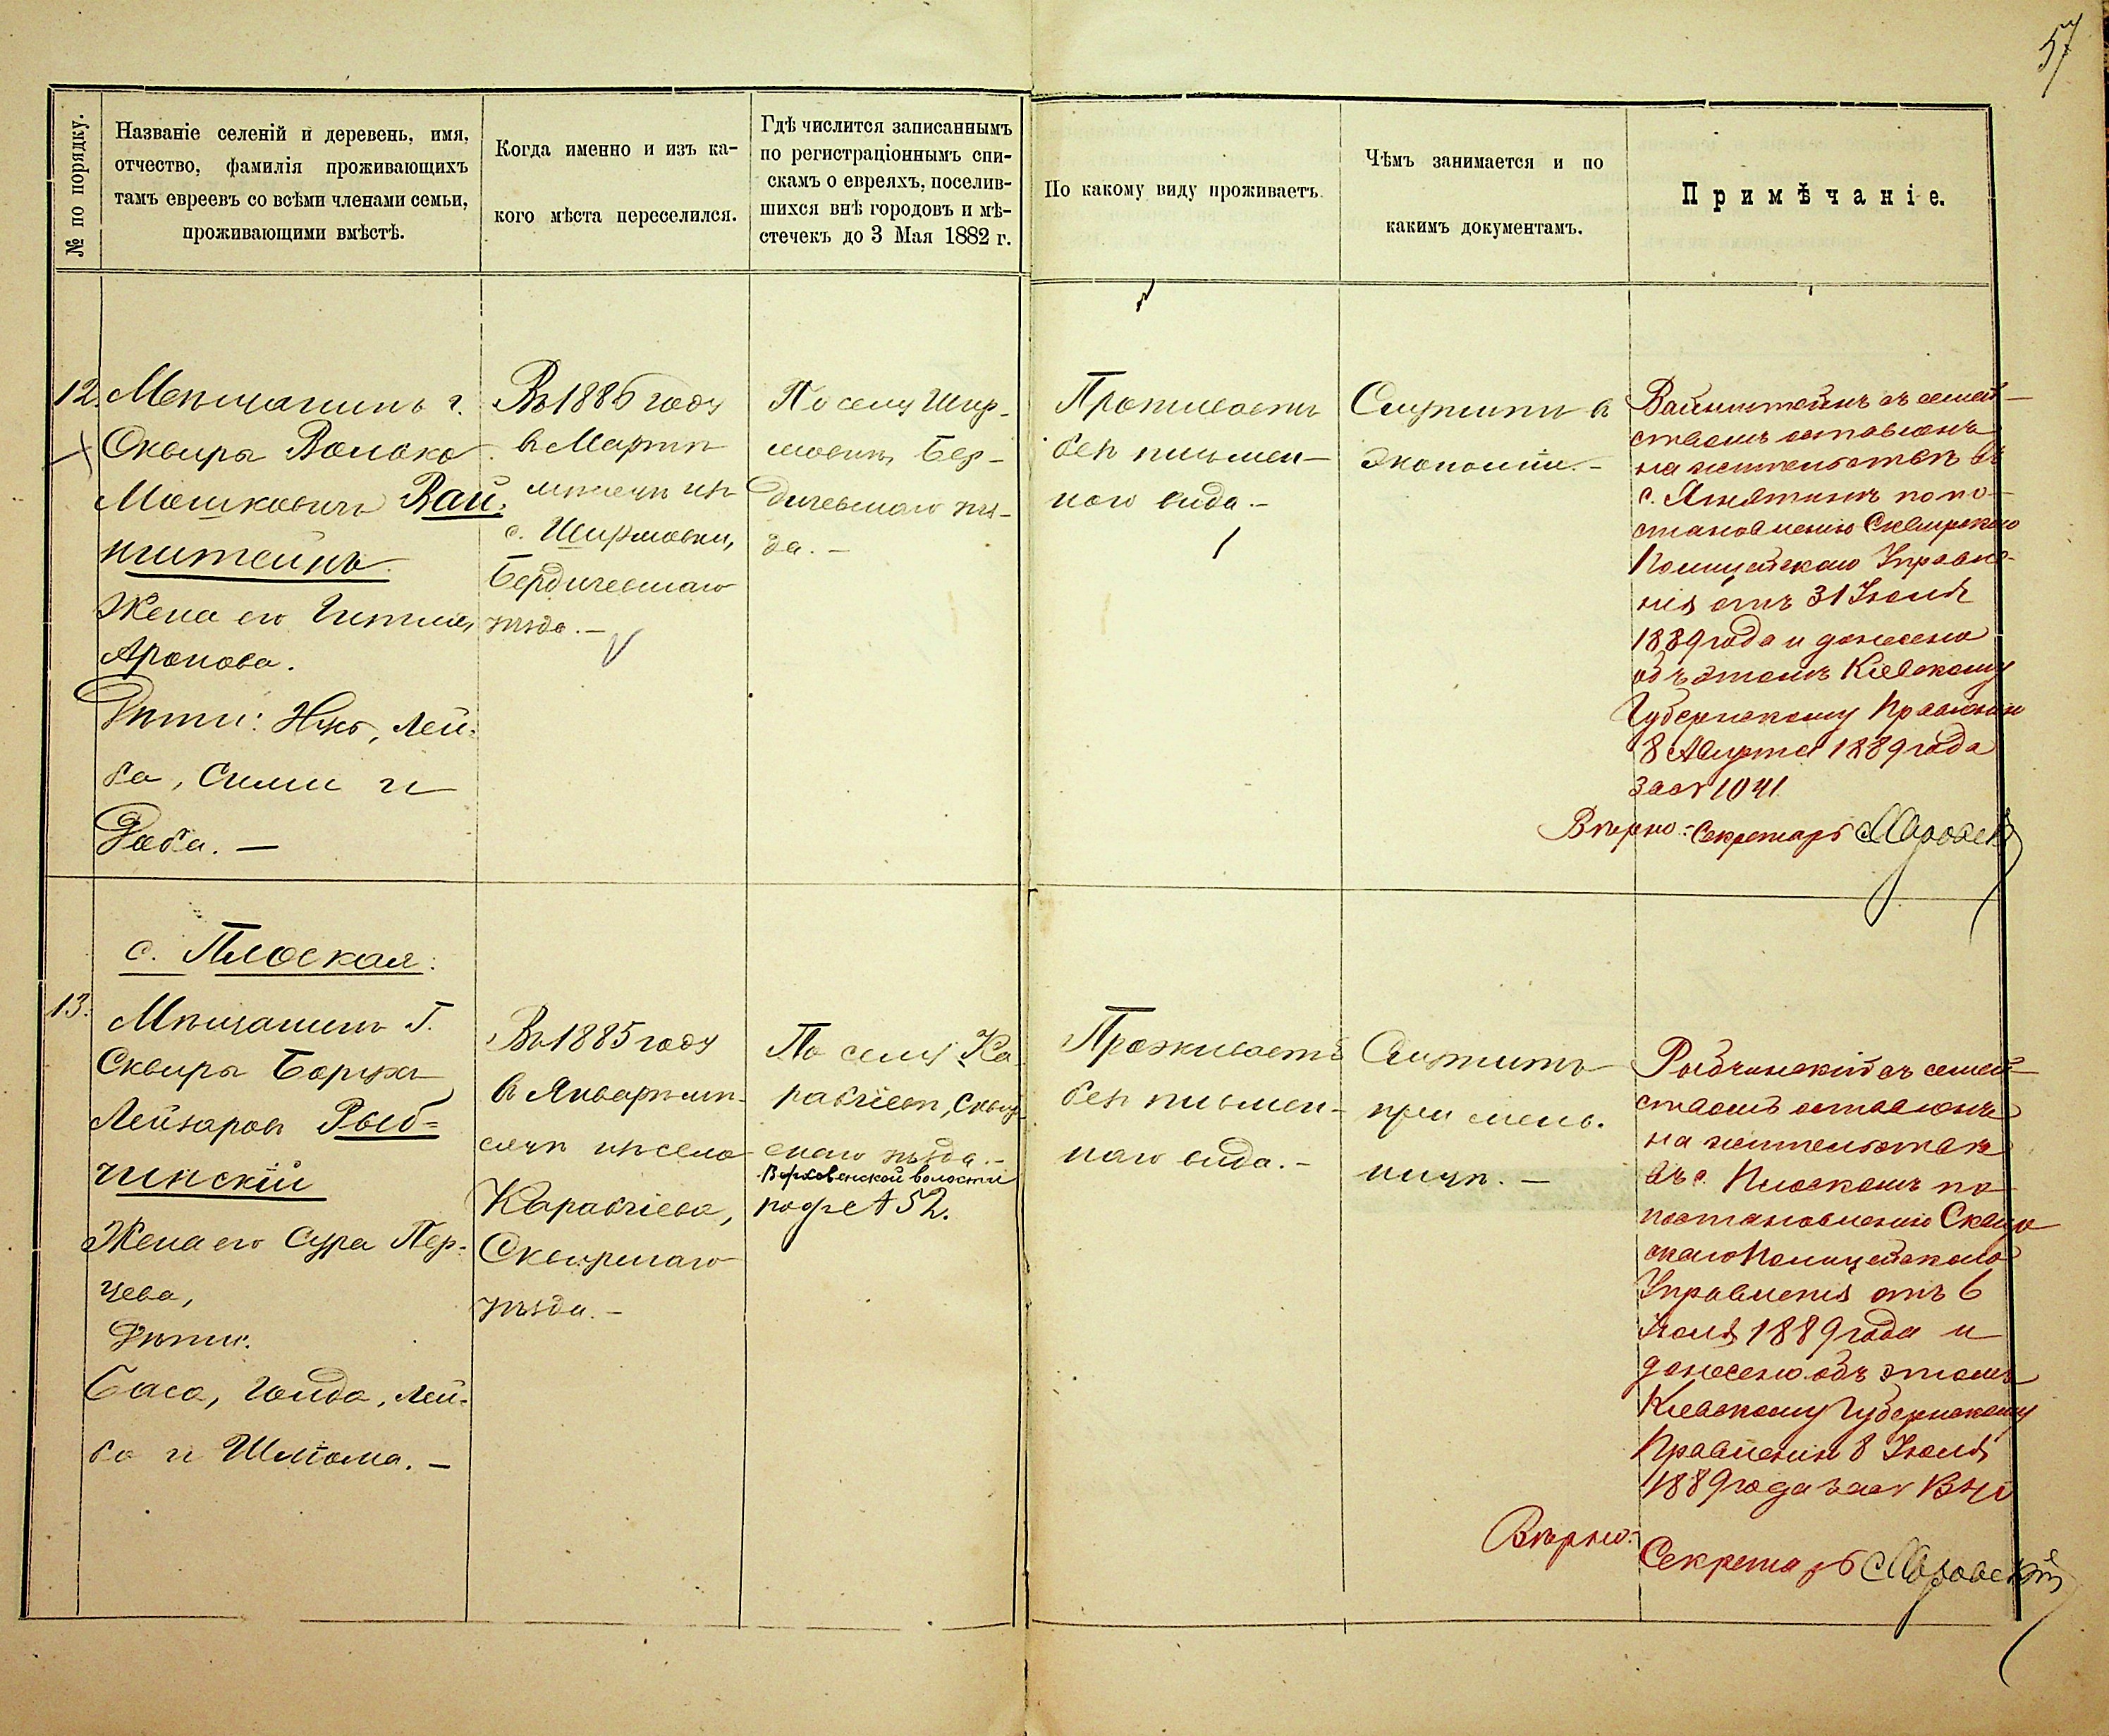 57
№ по порядку.
Названіе селеній и деревень, имя,
отчество, фамилія проживающихъ
тамъ евреевъ со всѣми членами семьи,
проживающими вмѣстѣ.
Когда именно и изъ ка-
кого мѣста переселился.
Гдѣ числится записаннымъ
по регистраціоннымъ спи-
скамъ о евреяхъ, поселив-
шихся внѣ городовъ и мѣ-
стечекъ до 3 Мая 1882 г.
По какому виду проживаетъ.
Чѣмъ занимается и по
какимъ документамъ.
Примѣчаніе.
12.
Мѣщанинъ г.
Сквиры Волько
Мошковичъ Вай-
нштейнъ.
Жена его Гитля
Аронова.
Дѣти: Лей-
ба, Сими и
Раба. —
Въ 1886 году
въ Мартѣ
мѣсяцѣ изъ
с. Ширмовки,
Бердичевскаго
уѣзда. —
По селу Шир-
мовкѣ, Бер-
дичевскаго уѣз-
да. —
Проживаетъ
безъ письмен-
наго вида. —
Служитъ въ
экономіи. —
Вайнштейнъ съ семей-
ствомъ оставленъ
на жительствѣ въ
с. Ягнятинѣ по по-
становленію Сквирскаго
Полицейскаго Управле-
нія отъ 31 Іюля
1889 года и донесено
объ этомъ Кіевскому
Губернскому Правленію
8 Августа 1889 года
за № 1041
Вѣрно: Секретарь
с. Плоская:
13.
Мѣщанинъ Г.
Сквиры Борухъ
Лейзаровъ Рыб-
чинскій
Жена его Сура Пер-
цева,
Дѣти:
Бася, Гольда, Лей-
ба и Шлёма. —
Въ 1885 году
въ Январѣ мѣ-
сяцѣ изъ села
Карабчіева,
Сквирскаго
уѣзда. —
По селу Ка-
рабчіевъ, Сквир-
скаго уѣзда. —
Верховенской волости
подъ № 52.
Проживаетъ
безъ письмен-
наго вида. —
Служитъ
при мель-
ницѣ. —
Рыбчинскій съ семей-
ствомъ оставленъ
на жительствѣ
въ с. Плоскомъ по
постановленію Сквир-
скаго Полицейскаго
Управленія отъ 6
Іюля 1889 года и
донесено объ этомъ
Кіевскому Губернскому
Правленію 8 Іюля
1889 года за №
Вѣрно:
Секретарь